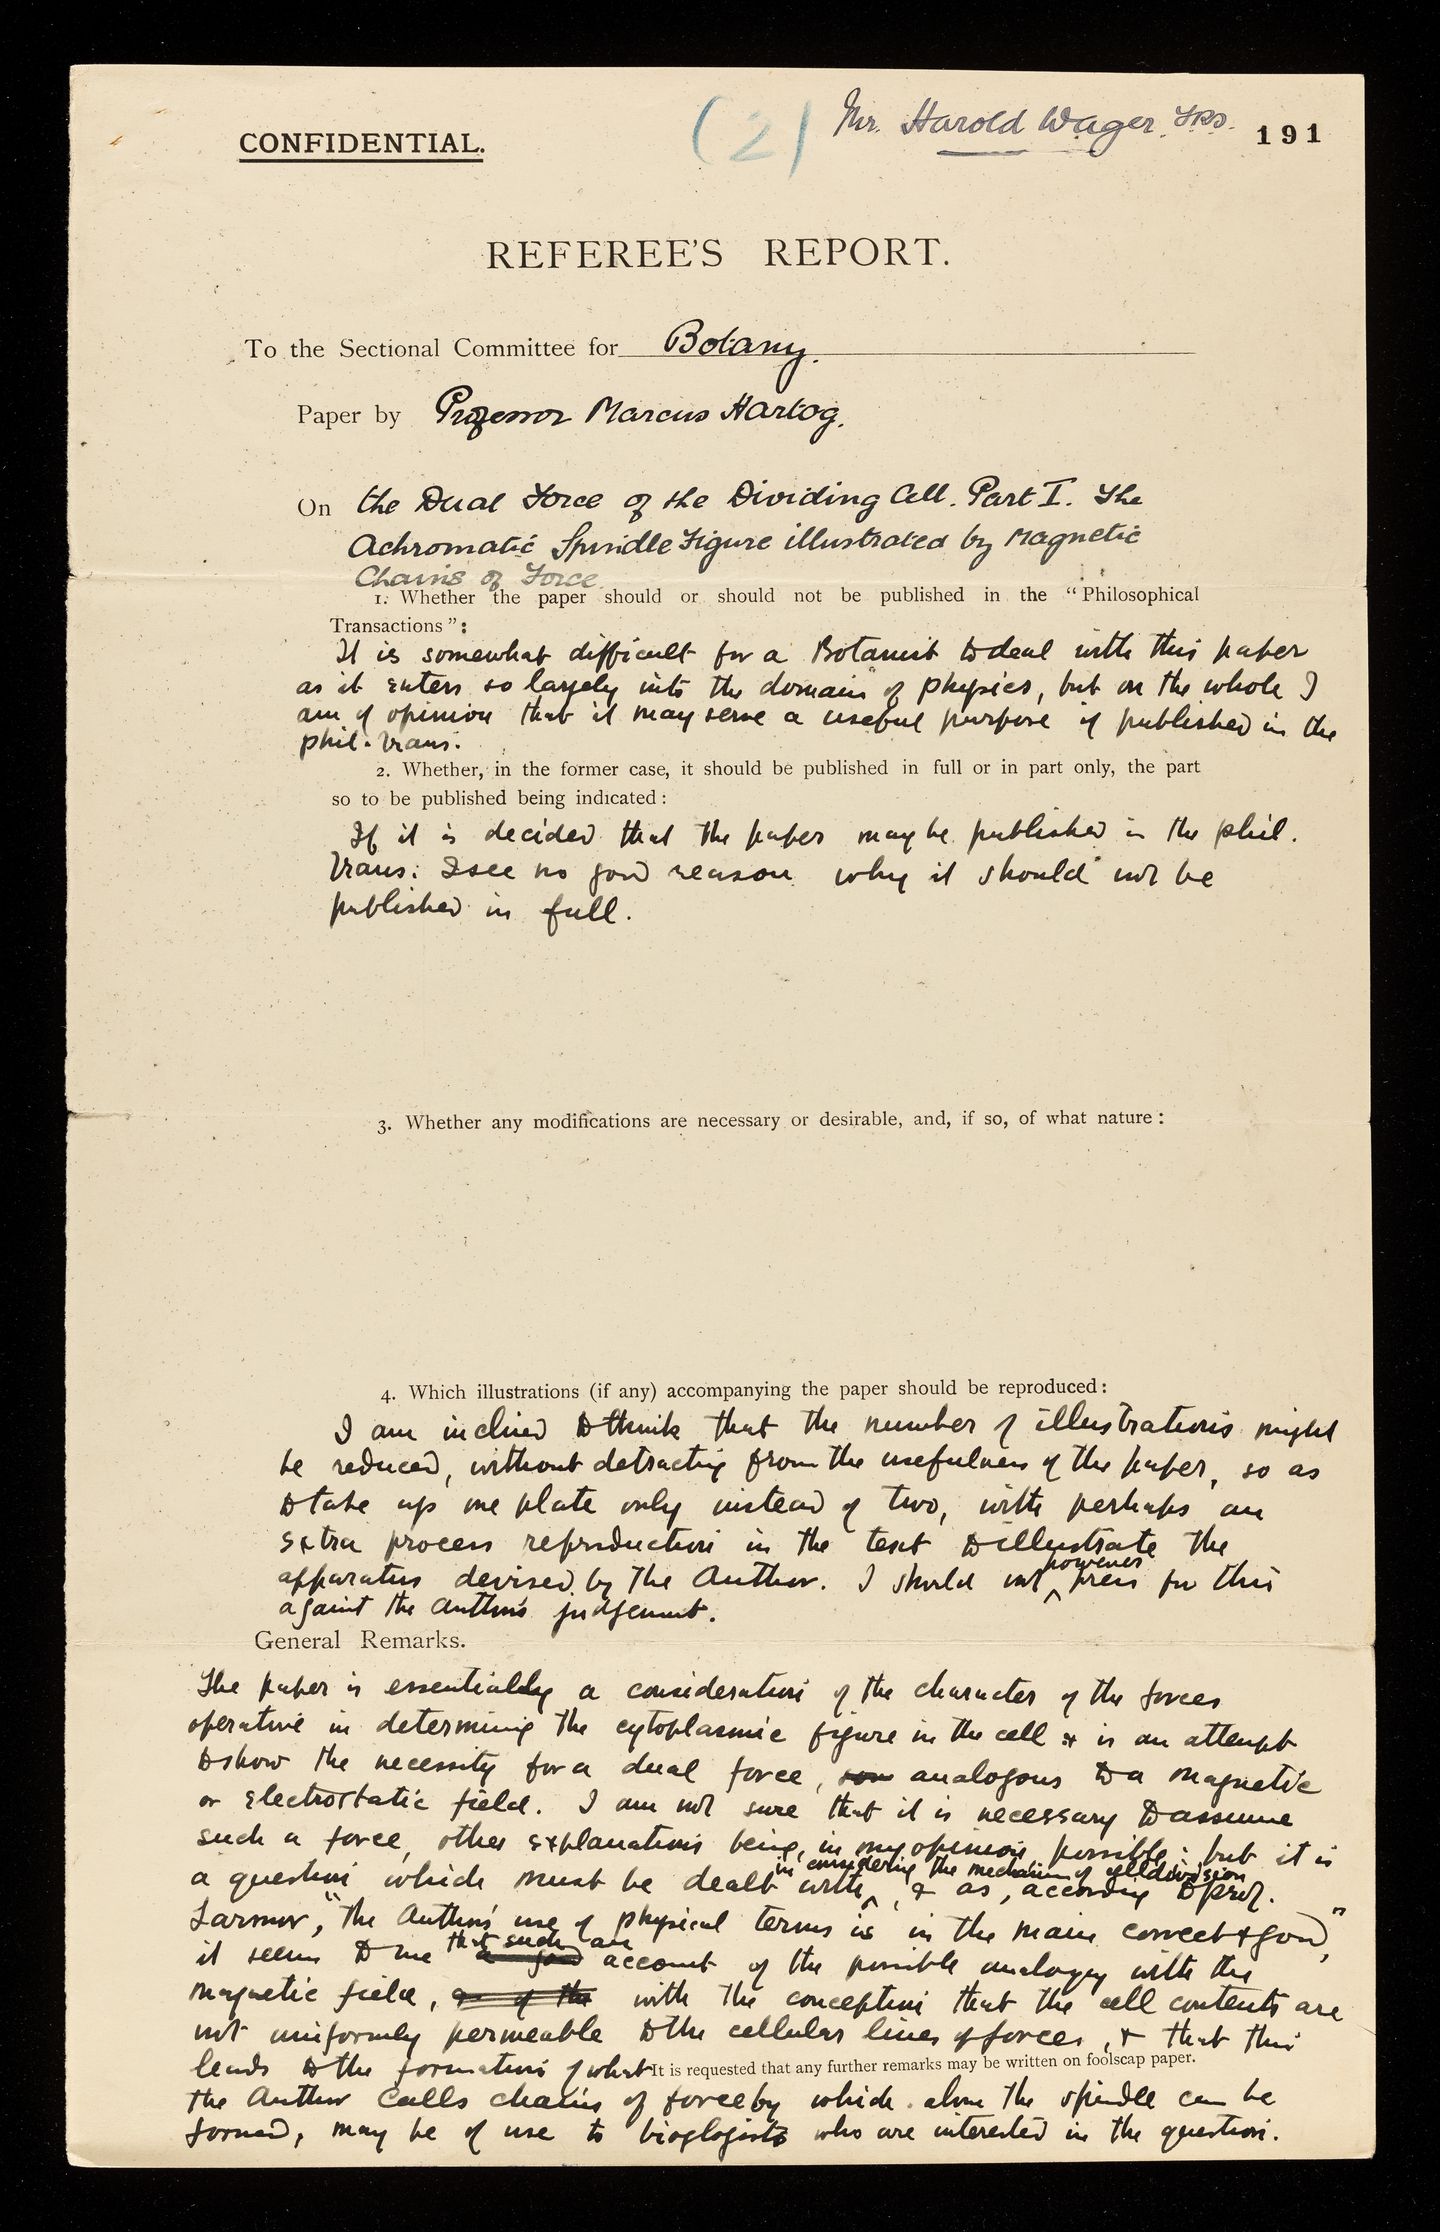 (2) Mr. Harold Wager. FRS. 191
CONFIDENTIAL.
REFEREE'S REPORT.
To the Sectional Committee for Botany.
Paper by Professor Marcus Hartog.
On the Dual Force of the Dividing Cell. Part I. The
Achromatic Spindle Figure illustrated by Magnetic
Chains of Force.
1. Whether the paper should or should not be published in the "Philosophical
Transactions":
It is somewhat difficult for a Botanist to deal with this paper
as it enters so largely into the domain of physics, but on the whole I
am of opinion that it may serve a useful purpose if published in the
phil. trans.
2. Whether, in the former case, it should be published in full or in part only, the part
so to be published being indicated:
If it is decided that the paper may be published in the phil.
trans: I see no good reason why it should not be
published in full.
3. Whether any modifications are necessary or desirable, and, if so, of what nature:
4. Which illustrations (if any) accompanying the paper should be reproduced:
I am inclined to think that the number of illustrations might
be reduced, without detracting from the usefulness of the paper, so as
to take up one plate only instead of two, with perhaps an
extra process reproduction in the text to illustrate the
apparatus devised by the Author. I should not however press for this
against the Author's judgement.
General Remarks.
The paper is essentially a consideration of the character of the forces
operative in determining the cytoplasmic figure in the cell & is an attempt
to show the necessity for a dual force, analogous to a magnetic
or electrostatic field. I am not sure that it is necessary to assume
such a force, other explanations being, in my opinion, possible; but it is
a question which must be dealt with in considering the mechanism of cell division, & as, according to Prof.
Larmor, "the Author's use of physical terms is in the main correct & good",
it seems to me that such an account of the possible analogy with the
magnetic field, with the conception that the cell contents are
not uniformly permeable to the cellular lines of forces, & that this
leads to the formation of what
It is requested that any further remarks may be written on foolscap paper.
the Author calls chains of force by which alone the spindle can be
formed, may be of use to biologists who are interested in the question.